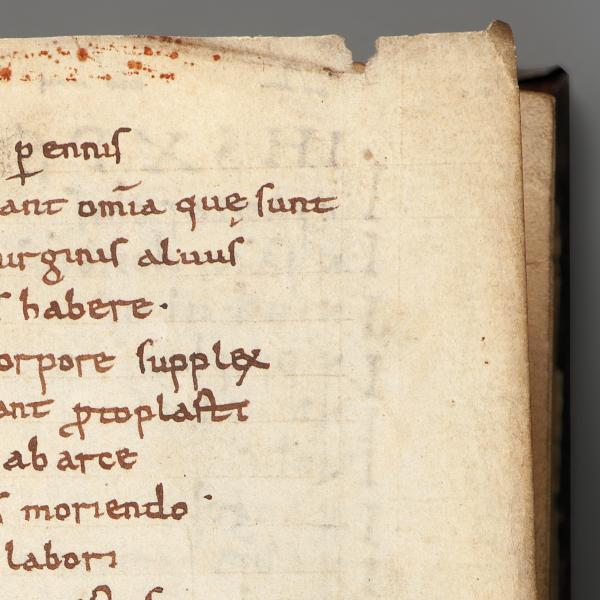 p̲ennis
ant om̅ia quę sunt
urginis aluus
s habere·
orpore supplex
ant ꝓtoplasti
ab arce
s moriendo·
labori